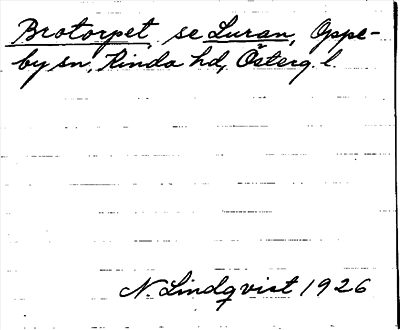 Brotorpet, se Luran, Oppe-
by sn, Kinda hd, Österg. l.
N. Lindqvist 1926